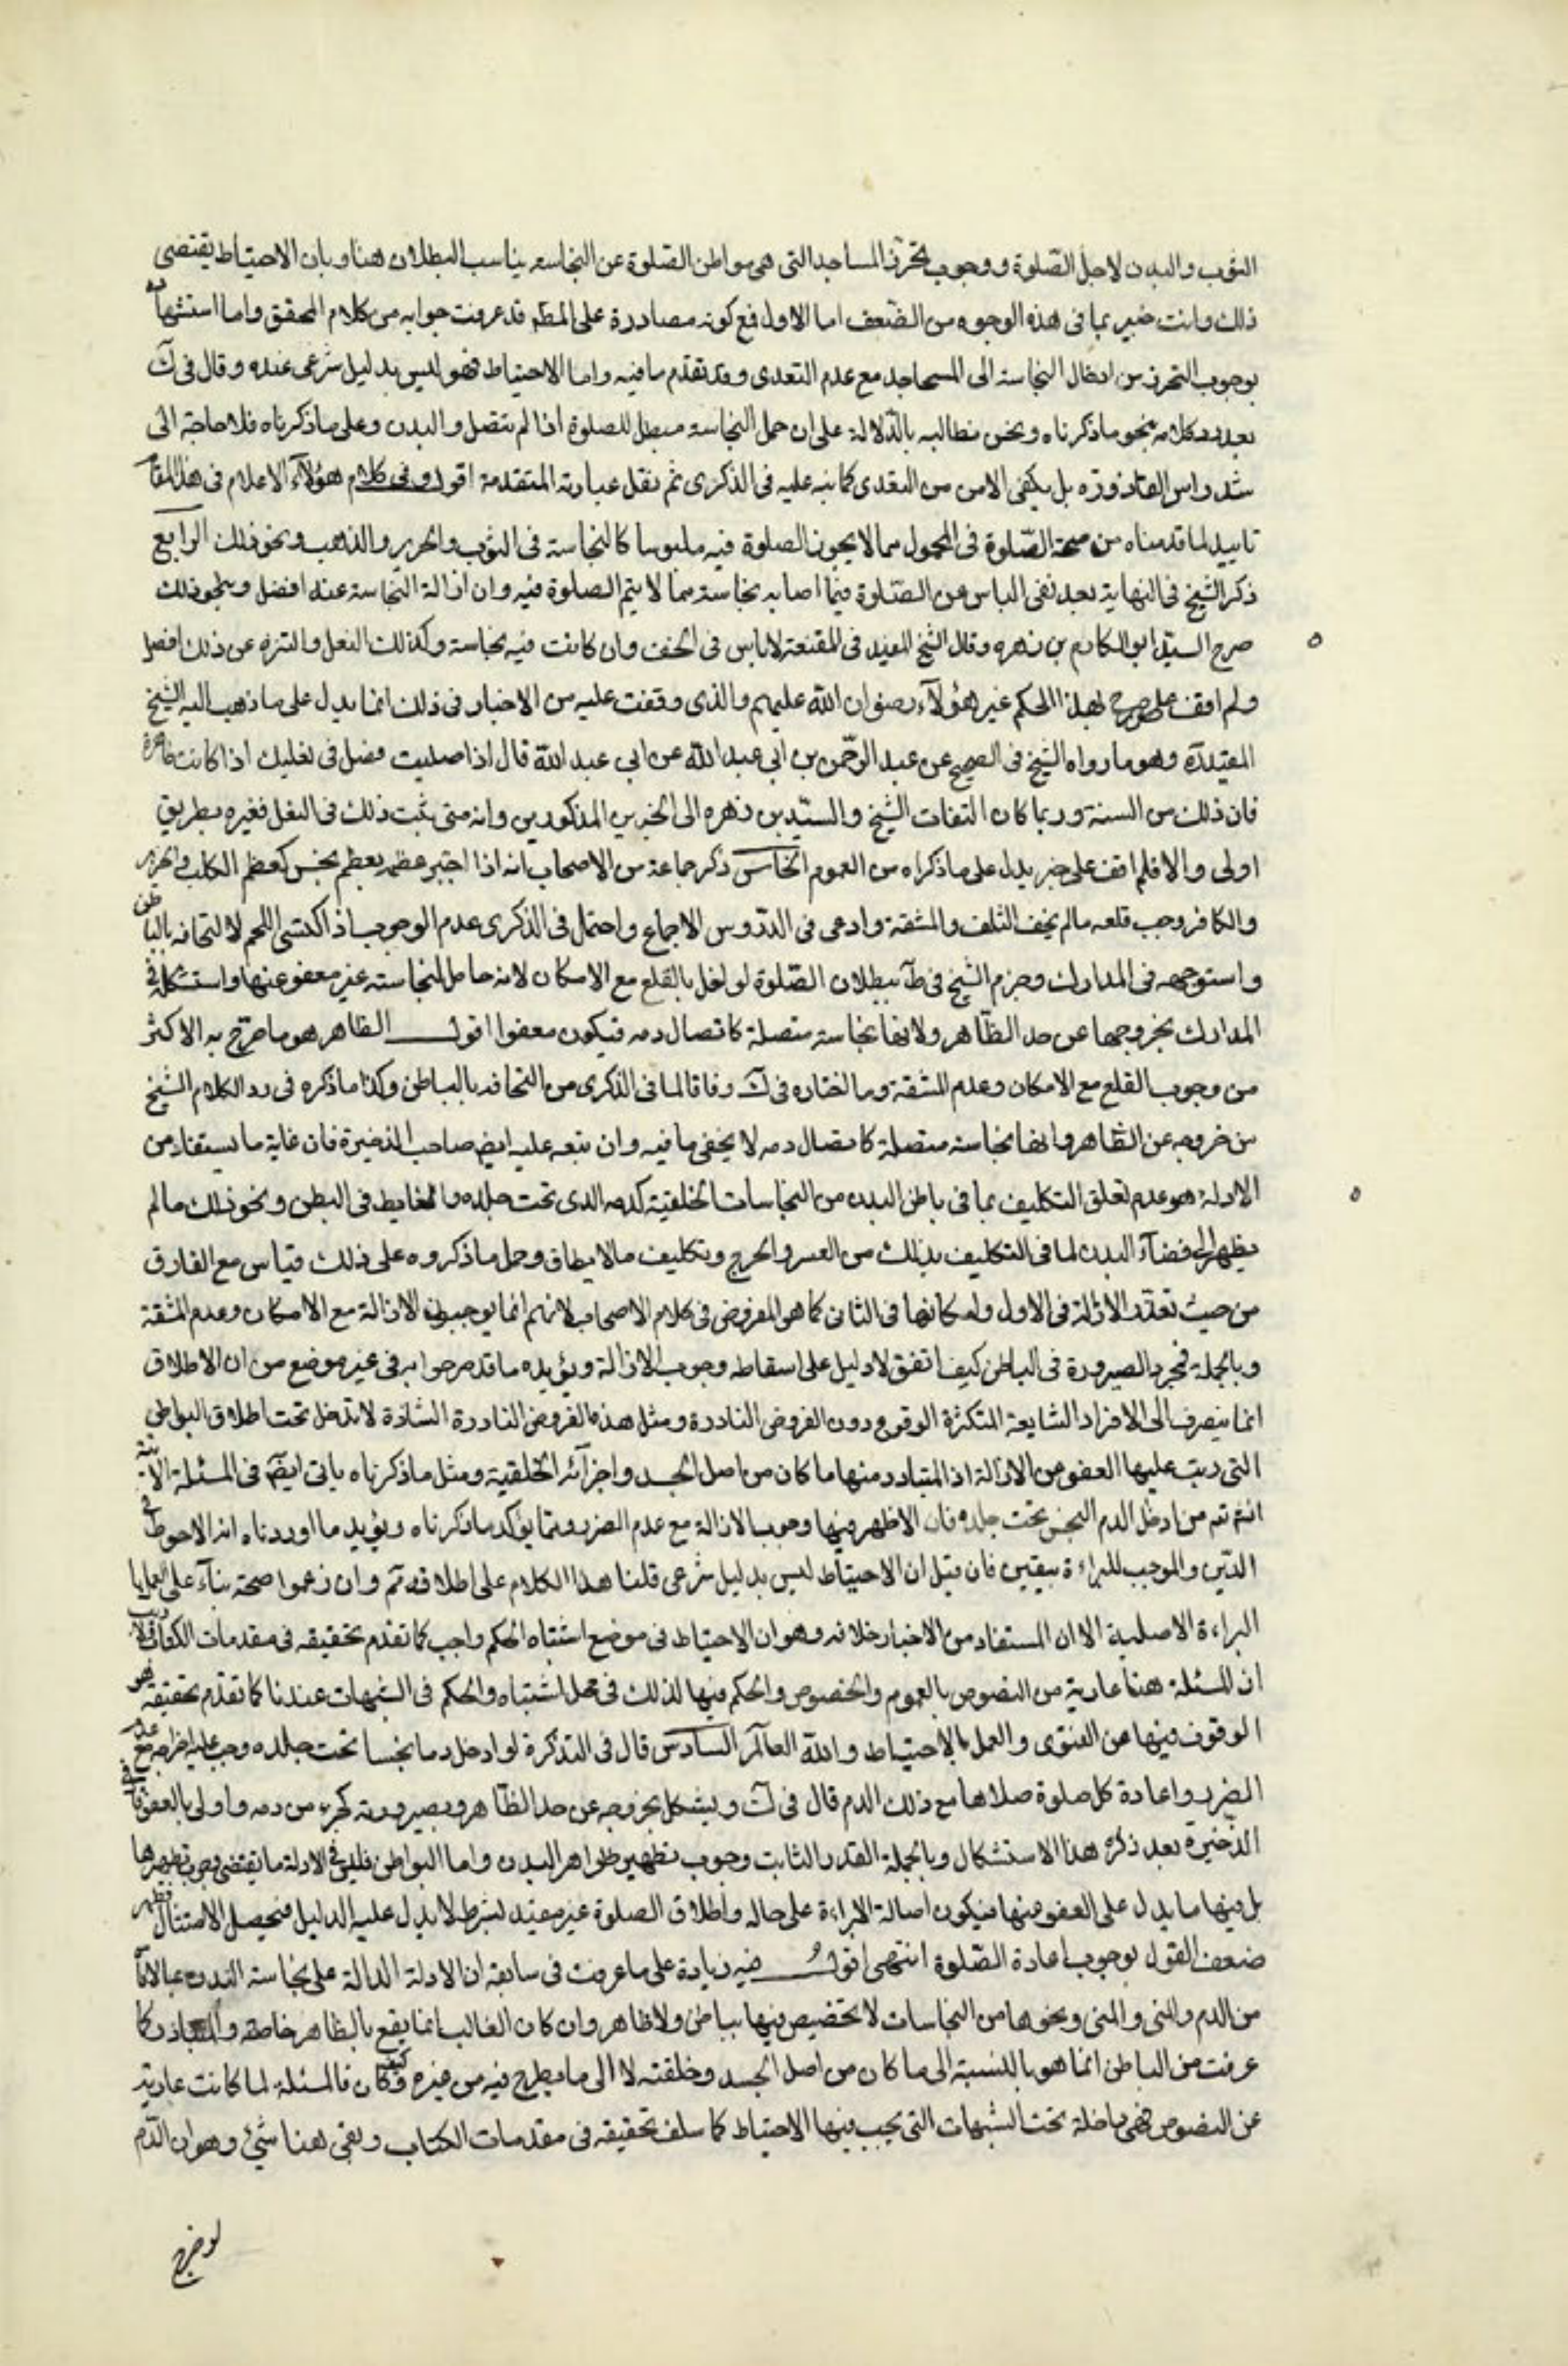 الثوب والبدن لاجل الصّلوة ووجوب تحرز المساجد التى هى مواطن الصّلوة عن النجاسه يناسب البطلان هنا وبان الاحتياط يقتضى
ذلك وانت خبير بما فى هذه الوجوه من الضّعف اما الاول فمع كونه مصادرة على المطه قد عرفت جوابه من كلام المحقق واما استشهاده
بوجوب التحرز من ادخال النجاسة الى المساجد مع عدم التعدى وقد تقدّم ما فيه واما الاحتياط فهو ليس بدليل شرعى عنده وقال فى ك
بعد رد كلامه بنحو ما ذكرناه ونحن نطالبه بالدّلالة على ان حمل النجاسة مبطل للصلوة اذا لم تتصل والبدن وعلى ما ذكرناه فلا حاجة الى
شد راس القارورة بل يكفى الامن من التعدى كما نبه عليه فى الذكرى ثم نقل عبارته المتقدمة اقول وفى كلام هؤلآء الاعلام فى هذا المقام
تاييد لما قدمناه من صحة الصّلوة فى المحمول مما لا يجوز الصلوة فيه ملبوسا كالنجاسة فى الثوب والحرير والذهب ونحو ذلك الرابع
ذكر الشيخ فى النهاية بعد نفى الباس عن الصّلوة فيما اصابه نجاسة مما لا يتم الصلوة فيه وان ازالة النجاسة عنه افضل وبنحو ذلك
صرح السيّد ابو المكارم بن زهره وقال الشيخ المفيد فى المقنعة لا باس فى الخف وان كانت فيه نجاسة وكذلك النعل والتنزه عن ذلك افضل
ولم اقف على مصرح بهذا الحكم غير هؤلآء رضوان الله عليهم والذى وقفت عليه من الاخبار فى ذلك انما يدل على ما ذهب اليه الشيخ
المفيد ره وهو ما رواه الشيخ فى الصحيح عن عبد الرحّمن بن ابى عبد الله عن ابى عبد الله قال اذا صليت فصل فى نعليك اذا كانت طاهرة
فان ذلك من السنة وربما كان التفات الشيخ والسيّد بن زهره الى الخبرين المذكورين وانه متى ثبت ذلك فى النعل فغيره بطريق
اولى والا فلم اقف على خبر يدل على ما ذكراه من العموم الخامس ذكر جماعة من الاصحاب انه اذا اجتبر عظمه بعظم نجس كعظم الكلب والخنزير
والكافر وجب قلعه ما لم يخف التلف والمشقة وادعى فى الدرّوس الاجماع واحتمل فى الذكرى عدم الوجوب اذ اكتسى اللحم لالتحاقه بالباطن
واستوجهه فى المدارك وجزم الشيخ فى ط ببطلان الصّلوة لو اخل بالقلع مع الامكان لانه حامل لنجاسته غير معفو عنها واستشكله فى
المدارك بخروجها عن حد الظّاهر ولانها نجاسة متصلة كاتصال دمه فيكون معفوا اقول الظاهر هو ما صرّح به الاكثر
من وجوب القلع مع الامكان وعدم المشقة وما اختاره فى ك وفاقا لما فى الذكرى من التحاقه بالباطن وكذا ما ذكره فى رد الكلام الشيخ
من خروجه عن الظّاهر وانها نجاسة متصلة كاتصال دمه لا يخفى ما فيه وان تبعه عليه ايضه صاحب الذخيرة فان غاية ما يستفاد من
الادلة هو عدم تعلق التكليف بما فى باطن البدن من النجاسات الخلقيّة كدمه الذى تحت جلده والغايط فى البطن ونحو ذلك ما لم
يظهر الى فضآء البدن لما فى التكليف بذلك من العسر والحرج وتكليف ما لا يطاق وحمل ما ذكروه على ذلك قياس مع الفارق
من حيث تعذّر الازالة فى الاول وامكانها فى الثانى كما هو المفروض فى كلام الاصحاب لانهم انما يوجبون الازالة مع الامكان وعدم المشقة
وبالجملة فمجرد الصيرورة فى الباطن كيف اتفق لا دليل على اسقاطه وجوب الازالة ويؤيده ما قدمرحوا به فى غير موضع من ان الاطلاق
انما ينصرف الى الافراد الشايعة المتكثرة الوقوع دون الفروض النادرة ومثل هذه الفروض النادرة الشاذة لا تدخل تحت اطلاق البواطن
التى رتب عليها العفو من الازالة اذ المتبادر منها ما كان من اصل الجسد واجزآئه الخلقية ومثل ما ذكرناه ياتى ايضه فى المسئلة الاتية
انش تعه من ادخل الدم النجس تحت جلده فان الاظهر فيها وجوب الازالة مع عدم الضرر ومما يؤكد ما ذكرناه ويؤيد ما اوردناه انه الاحوط فى
الدّين والموجب للبراءة بيقين فان قيل ان الاحتياط ليس بدليل شرعى قلنا هذا الكلام على اطلاقه تم وان زعموا صحته بنآء على العمل با
البراءة الاصلية الا ان المستفاد من الاخبار خلافه وهو ان الاحتياط فى موضع اشتباه الحكم واجب كما تقدم تحقيقه فى مقدمات الكتاب ولا ريب
ان المسئلة هنا عارية من النصوص بالعموم والخصوص والحكم فيها لذلك فى محل اشتباه والحكم فى الشبهات عندنا كما تقدّم تحقيقه هو
الوقوف فيها عن الفتوى والعمل بالاحتياط والله العالم السادس قال فى التذكرة لو ادخل دما نجسا تحت جلده وجب عليه اخراجه مع عدم
الضرر واعادة كل صلوة صلاها مع ذلك الدم قال فى ك ويشكل بخروجه عن حد الظّاهر وبصيرورته كجزء من دمه واولى بالعفو قال فى
الذّخيرة بعد ذكر هذا الاستشكال وبالجملة القدر الثابت وجوب تطهير ظواهر البدن واما البواطن فليس فى الادلة ما يقتضى وجوب تطهيرها
بل فيها ما يدل على العفو عنها فيكون اصالة البراءة على حاله واطلاق الصلوة غير مقيد بشرط لا يدل عليه الدليل فيحصل الامتثال فظهر
ضعف القول بوجوب اعادة الصّلوة انتهى اقول فيه زيادة على ما عرفت فى سابقه ان الادلة الدالة على نجاسة البدن بملاقاة
من الدم والمنى ونحوها من النجاسات لا تخصيص فيها بباطن ولا ظاهر وان كان الغالب انما يقع بالظاهر خاصة والمتبادر كما
عرفت من الباطن انما هو بالنسبة الى ما كان من اصل الجسد وخلقته لا الى ما يطرح فيه من غيره وكيف كان فالمسئلة لما كانت عارية
عن النصوص فهى داخلة تحت الشبهات التى يجب فيها الاحتياط كما سلف تحقيقه فى مقدمات الكتاب وبقى هنا شئ وهو ان الدّم
لو خرج